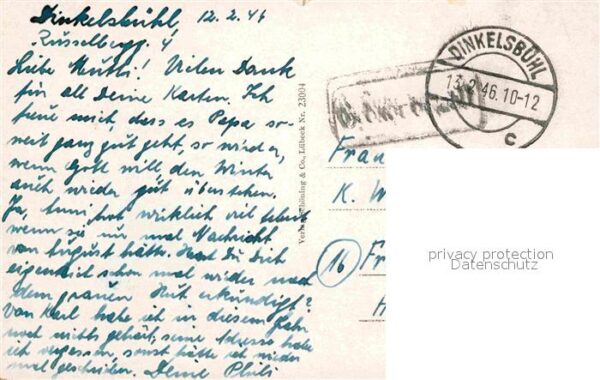 Dinkelsbühl, 12.2.46
Russelberg. 4
Liebe Mutti! Vielen Dank
für all Deine Karten. Ich
freue mich, dass es Papa so-
weit ganz gut geht, so wird er,
wenn Gott will, den Winter
auch wieder gut überstehen.
Ja, Anni hat wirklich viel
wenn sie nur mal Nachricht
von August hätte. Hast Du Dich
eigentlich schon mal wieder nach
dem grauen Hut erkundigt?
Von Karl habe ich in diesem Jahr
noch nichts gehört, seine Adresse habe
ich vergessen, sonst hätte ich wieder
mal geschrieben. Deine
Verlag Schöning & Co., Lübeck Nr. 23004
DINKELSBÜHL
13.2.46.10-12
c
Frau
K. W
16 Fr
privacy protection
Datenschutz